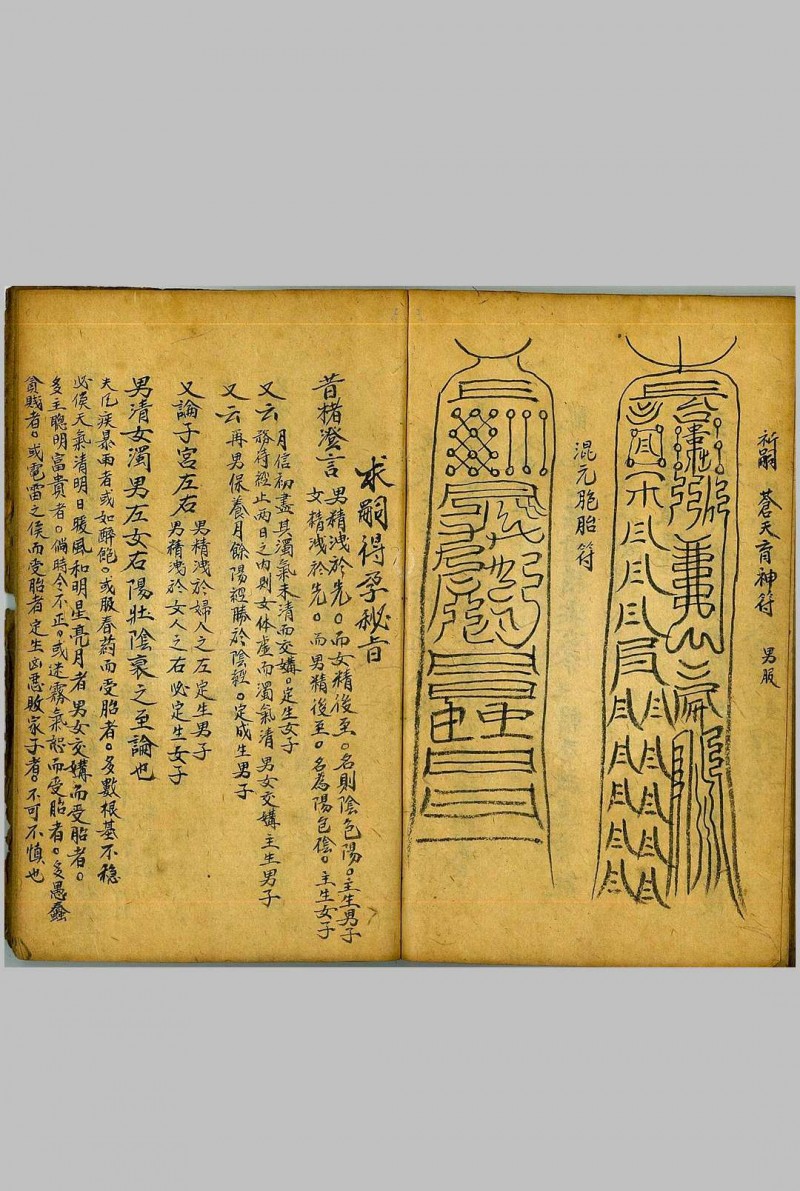 祈嗣 蒼天育神符 男服
混元胞胎符
求嗣得孕秘旨
昔楮澄言
男精洩於先。而女精後至。名則陰包陽。主生男子
女精洩於先。而男精後至。名為陽包陰。主生女子
又云
月信初盡其濁氣未清而交媾。定生女子
務符經止兩日之內則女体虚而濁氣清男女交媾主生男子
又云 再男保養月餘陽經勝於陰經。定成生男子
又論子宮左右
男精洩於婦人之左定生男子
男精洩於女人之右必定生女子
男清女濁男左女右陽壯陰衰之至論也
夫凡疾暴雨者或如醉飽。或服春葯而受胎者。多數根基不穩
必俟天氣清明日暖風和明星亮月者男女交媾而受胎者。
多主聰明富貴者。倘時令不正。或迷霧氣恕而受胎者。多愚蠢
貧賤者。或電雷之侯而受胎者定生凶惡敗家子者。不可不慎也